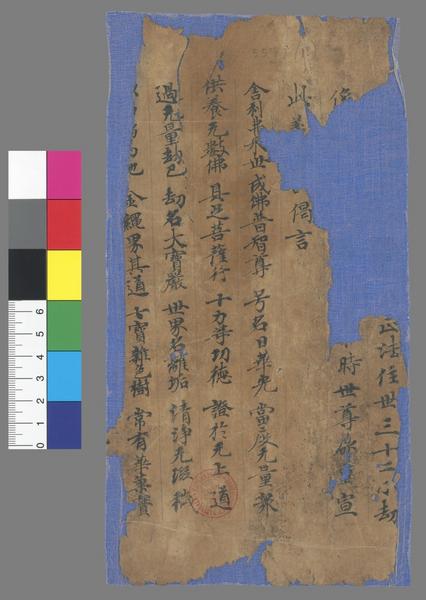 正法住世三十二小劫
像 時世尊欲重宣
此 偈言
舍利弗來世 成佛普智尊 号名曰華光 當度无量衆
供養无數佛 具足菩薩行 十力等功德 證於无上道
過无量劫已 劫名大寶嚴 世界名離垢 清淨无瑕穢
地 金繩界其道 七寶雜色樹 常有華菓實
0 1 2 3 4 5 6